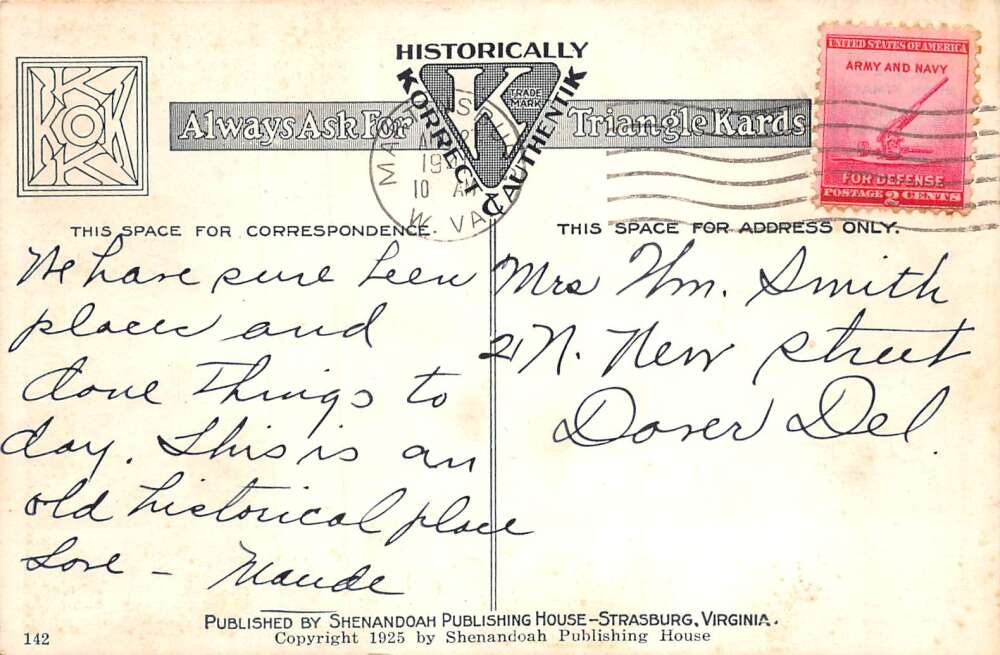 HISTORICALLY
KORRECT & AUTHENTIK
K
TRADE MARK
Always Ask For Triangle Kards
KOK
UNITED STATES OF AMERICA
ARMY AND NAVY
FOR DEFENSE
POSTAGE 2 CENTS
10 AM
W. VA.
THIS SPACE FOR CORRESPONDENCE.
We have sure been
places and
done Things to
day. This is an
old historical place
Love – Maude
THIS SPACE FOR ADDRESS ONLY.
Mrs Wm. Smith
21 N. New Street
Dover Del.
PUBLISHED BY SHENANDOAH PUBLISHING HOUSE–STRASBURG, VIRGINIA.
142
Copyright 1925 by Shenandoah Publishing House